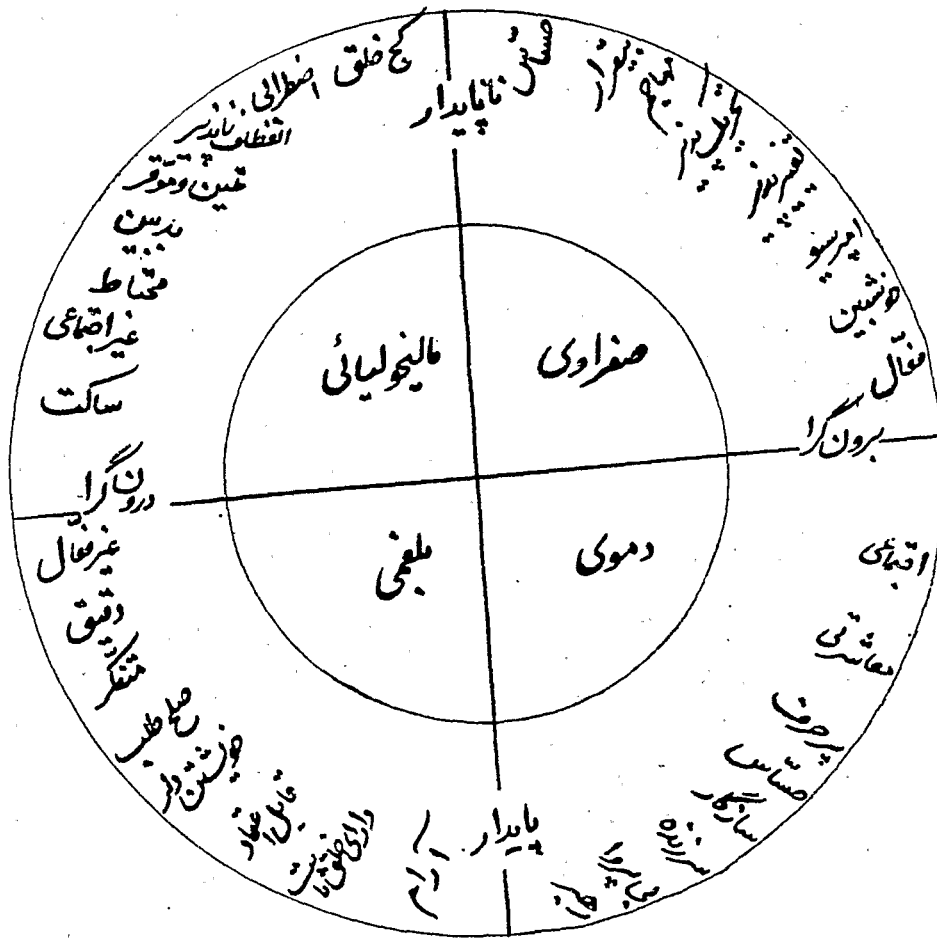 ناپایدار
حساس
بیقرار
مهاجم
تهییج پذیر
تغییرپذیر
خوشبین
فعّال
برون گرا
اجتماعی
معاشرتی
پرحرف
حسّاس
سازگار
سرزنده
بی پروا
پایدار
آرام
دارای خلق ثابت
قابل اعتماد
خویشتن دار
صلح طلب
متفکّر
دقیق
غیرفعّال
درون گرا
ساکت
غیر اجتماعی
محتاط
بدبین
انعطاف ناپذیر
اضطرابی
کج خلق
مالیخولیائی
صفراوی
بلغمی
دموی